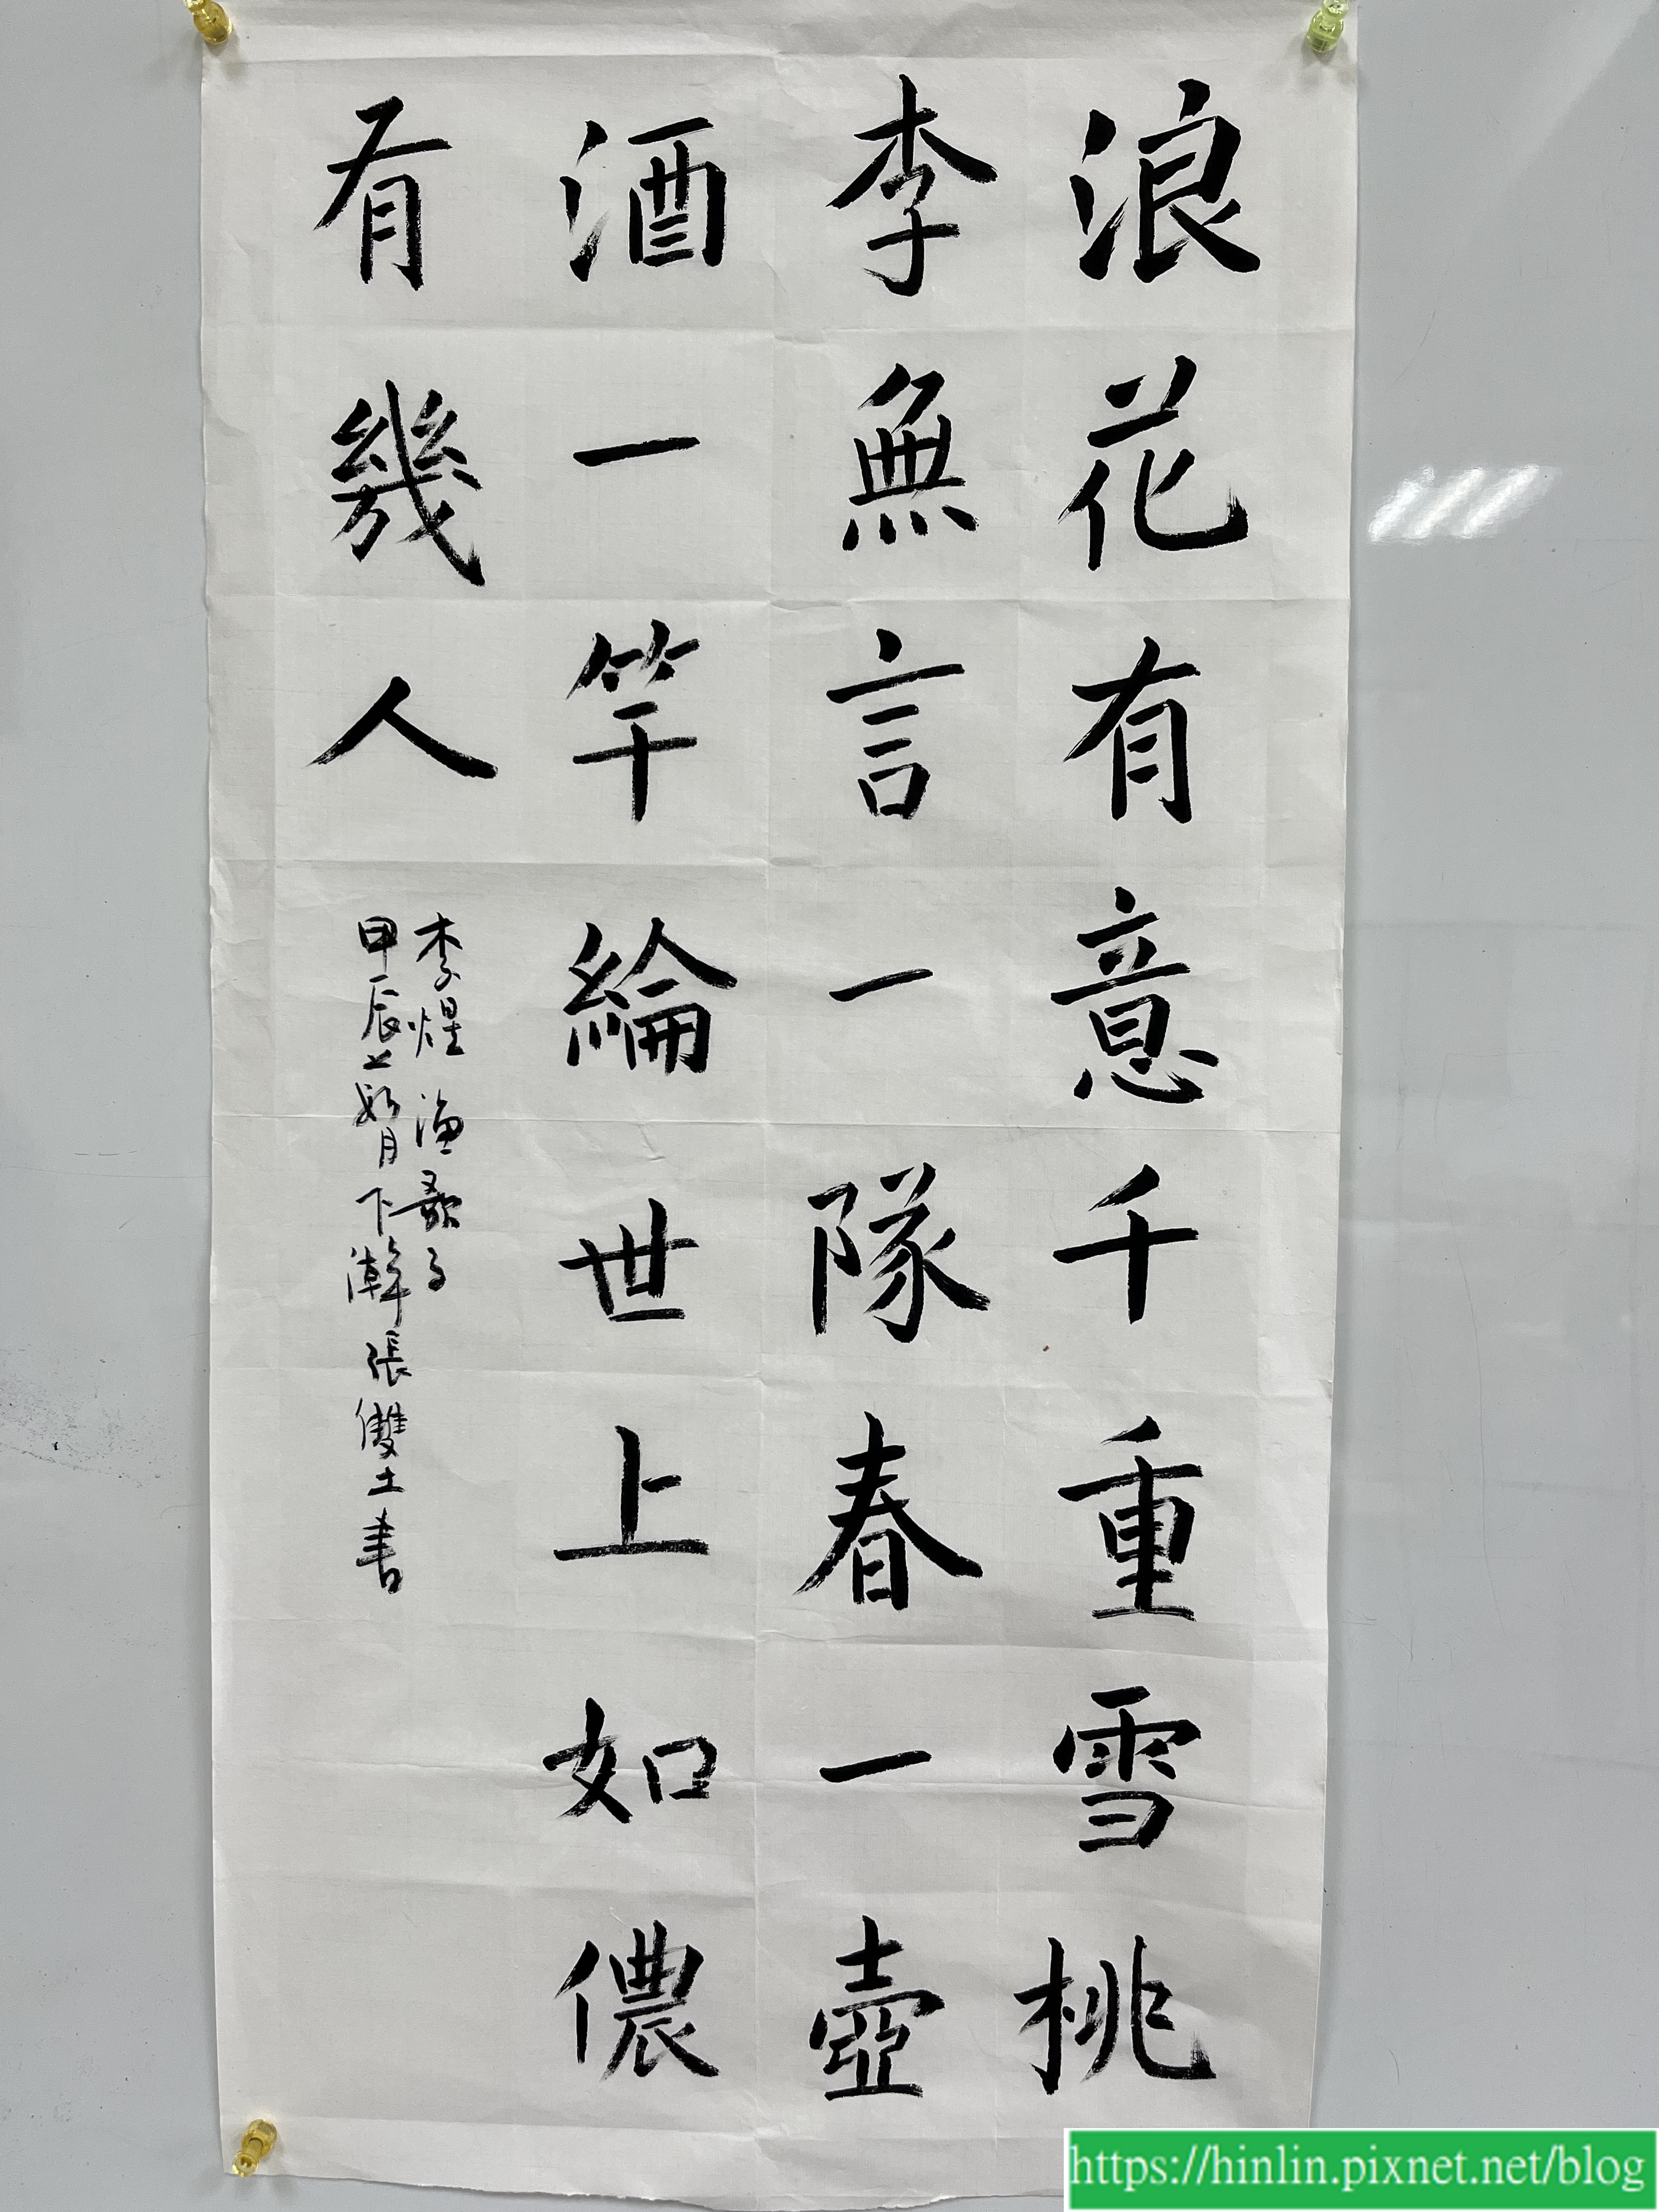 浪花有意千重雪桃
李無言一隊春一壺
酒一竿綸世上如儂
有幾人
李煜 漁歌子
甲辰 月下澣張雙土書
https://hinlin.pixnet.net/blog